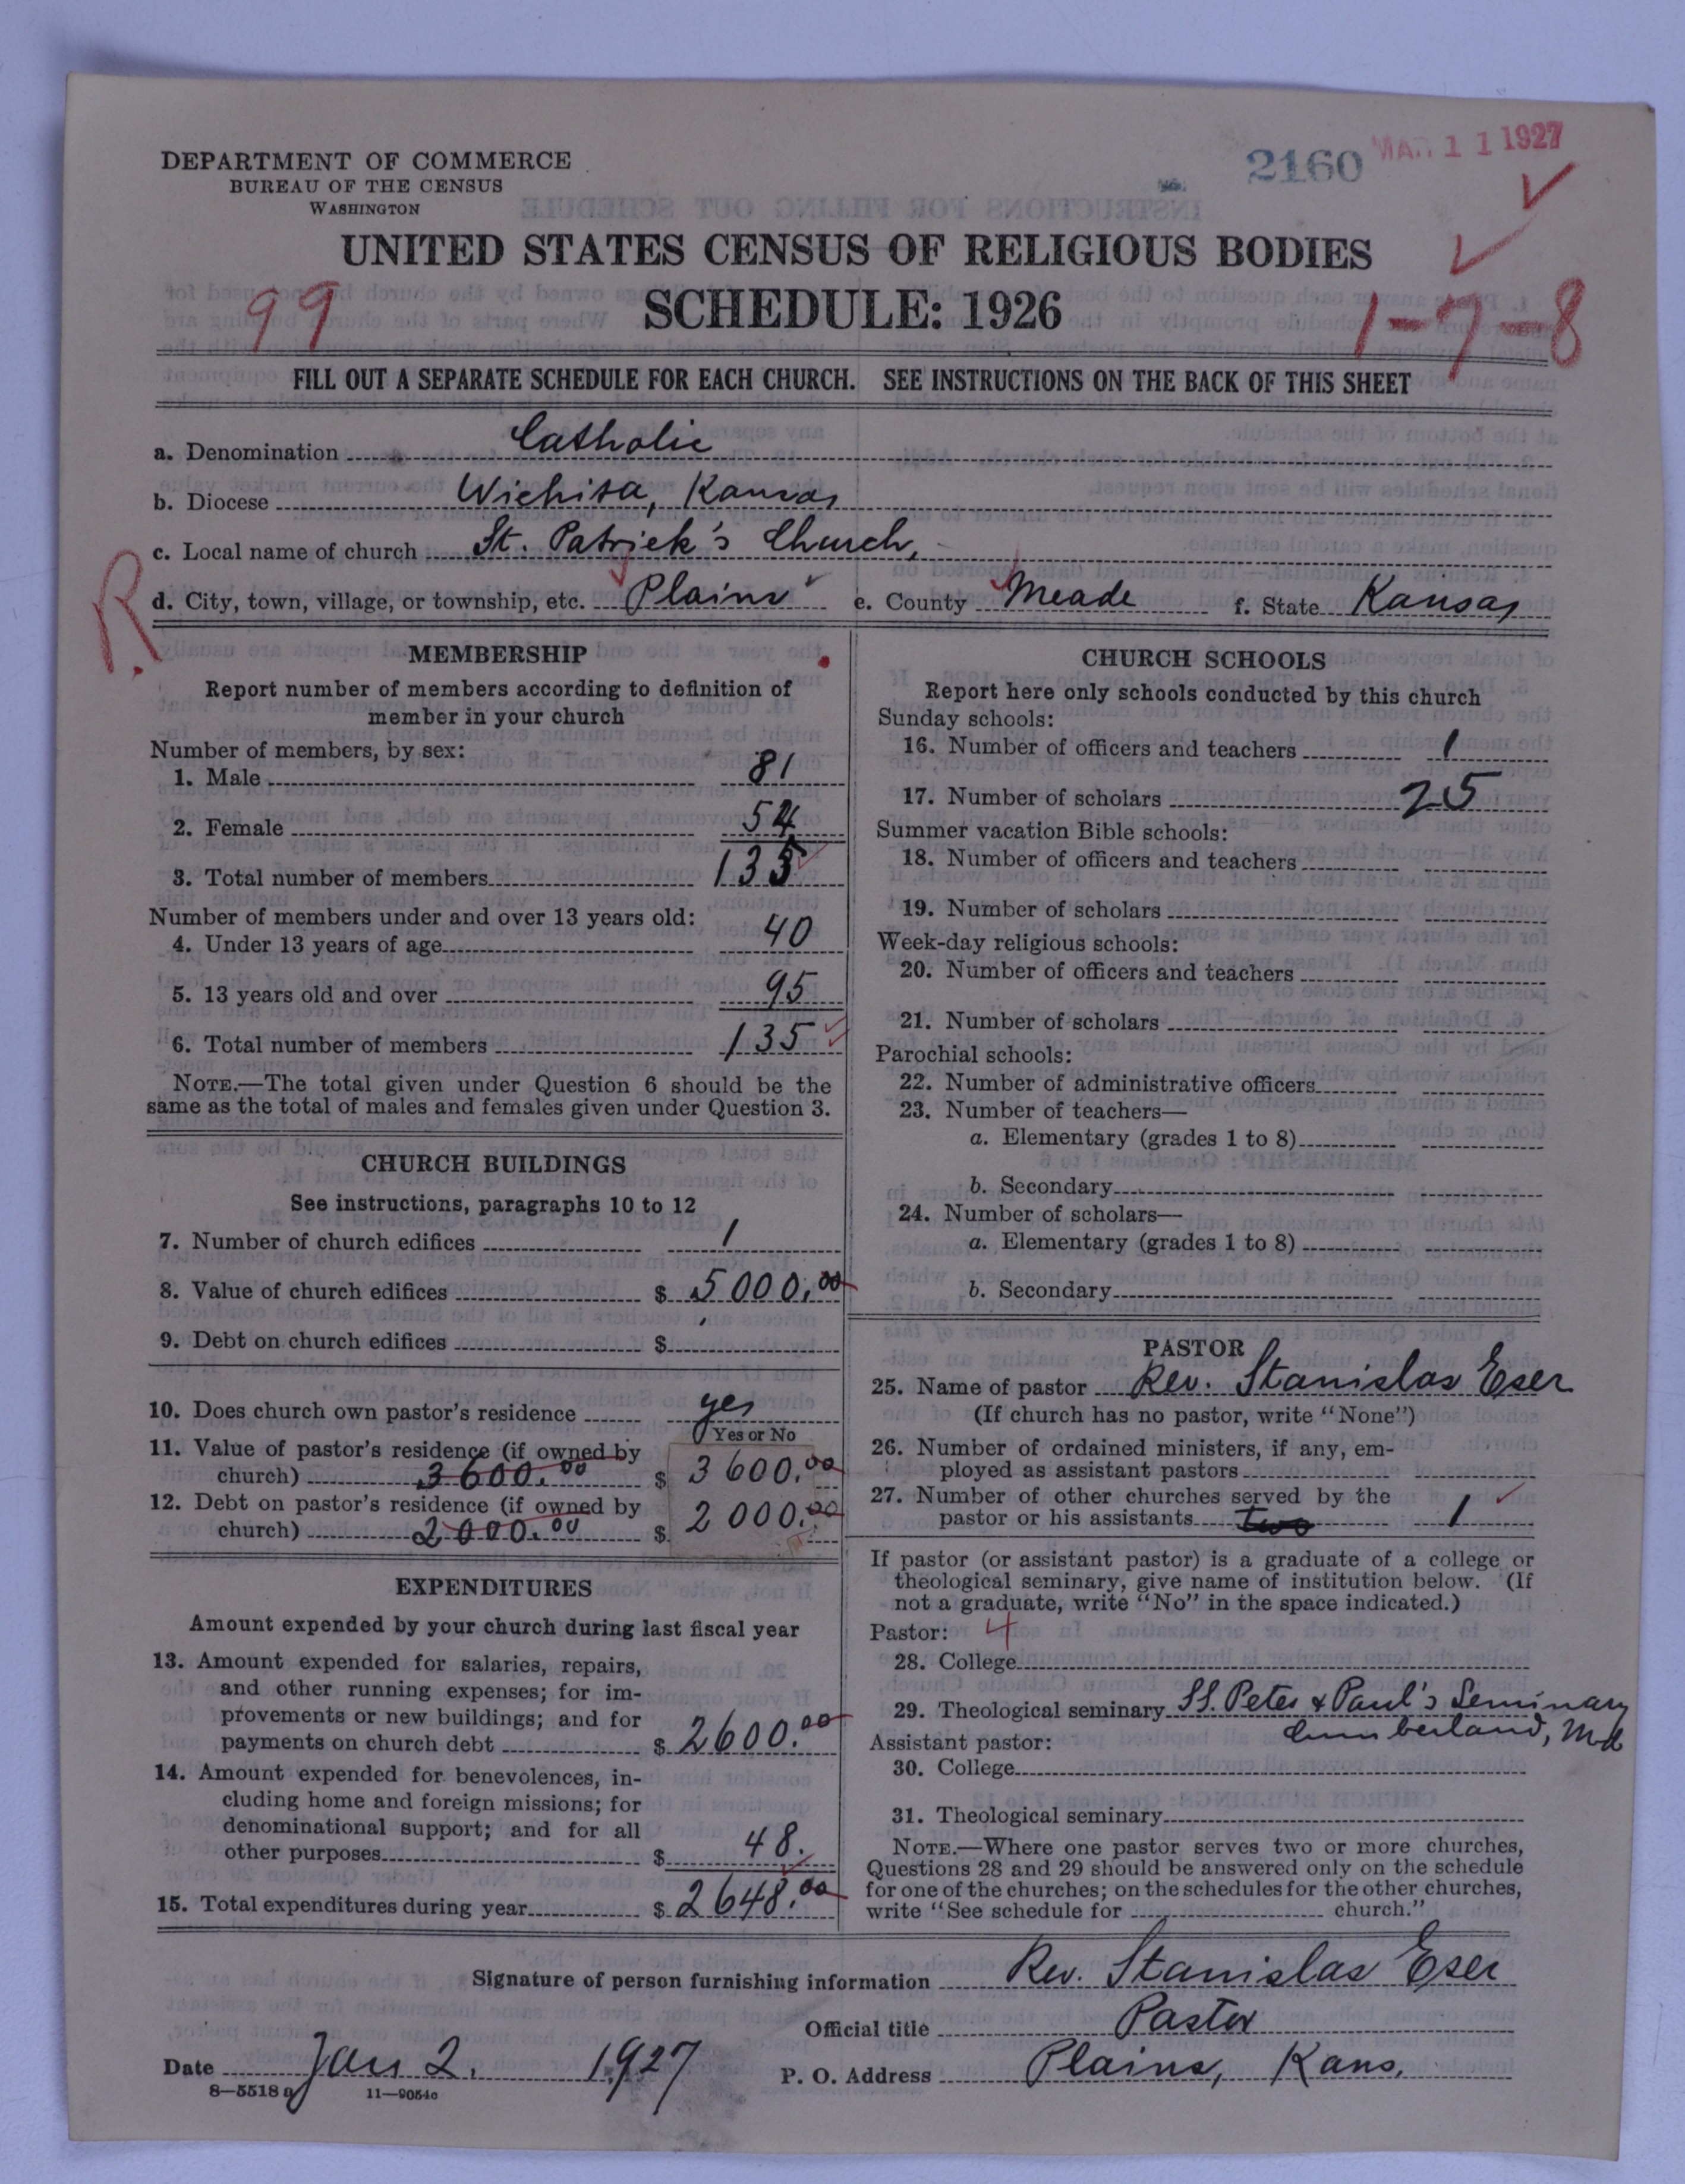 DEPARTMENT OF COMMERCE
BUREAU OF THE CENSUS
WASHINGTON
2160
MAR 11 1927
UNITED STATES CENSUS OF RELIGIOUS BODIES
99
SCHEDULE: 1926
1-7-8
FILL OUT A SEPARATE SCHEDULE FOR EACH CHURCH. SEE INSTRUCTIONS ON THE BACK OF THIS SHEET
a. Denomination Catholic
b. Diocese Wichita, Kansas
c. Local name of church St. Patrick's Church,
R.
d. City, town, village, or township, etc. Plains e. County Meade f. State Kansas
MEMBERSHIP
Report number of members according to definition of
member in your church
Number of members, by sex:
1. Male 81
2. Female 54
3. Total number of members 135
Number of members under and over 13 years old:
4. Under 13 years of age 40
5. 13 years old and over 95
6. Total number of members 135
NOTE.—The total given under Question 6 should be the
same as the total of males and females given under Question 3.
CHURCH BUILDINGS
See instructions, paragraphs 10 to 12
7. Number of church edifices 1
8. Value of church edifices $ 5000.00
9. Debt on church edifices $
10. Does church own pastor's residence yes
Yes or No
11. Value of pastor's residence (if owned by
church) 3600.00 $ 3600.00
12. Debt on pastor's residence (if owned by
church) 2000.00 $ 2000.00
EXPENDITURES
Amount expended by your church during last fiscal year
13. Amount expended for salaries, repairs,
and other running expenses; for im-
provements or new buildings; and for
payments on church debt $ 2600.00
14. Amount expended for benevolences, in-
cluding home and foreign missions; for
denominational support; and for all
other purposes $ 48.
15. Total expenditures during year $ 2648.00
CHURCH SCHOOLS
Report here only schools conducted by this church
Sunday schools:
16. Number of officers and teachers 1
17. Number of scholars 25
Summer vacation Bible schools:
18. Number of officers and teachers
19. Number of scholars
Week-day religious schools:
20. Number of officers and teachers
21. Number of scholars
Parochial schools:
22. Number of administrative officers
23. Number of teachers—
a. Elementary (grades 1 to 8)
b. Secondary
24. Number of scholars—
a. Elementary (grades 1 to 8)
b. Secondary
PASTOR
25. Name of pastor Rev. Stanislas Eser
(If church has no pastor, write "None")
26. Number of ordained ministers, if any, em-
ployed as assistant pastors
27. Number of other churches served by the
pastor or his assistants two 1
If pastor (or assistant pastor) is a graduate of a college or
theological seminary, give name of institution below. (If
not a graduate, write "No" in the space indicated.)
Pastor: 4
28. College
29. Theological seminary SS. Peter & Paul's Seminary
Cumberland, Md
Assistant pastor:
30. College
31. Theological seminary
NOTE.—Where one pastor serves two or more churches,
Questions 28 and 29 should be answered only on the schedule
for one of the churches; on the schedules for the other churches,
write "See schedule for church."
Signature of person furnishing information Rev. Stanislas Eser
Official title Pastor
Date Jan 2. 1927 P. O. Address Plains, Kans.
8—5518 a 11—9054c